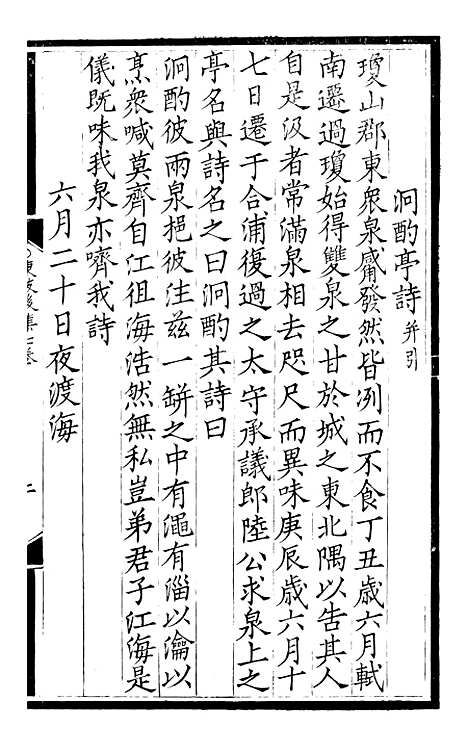 泂酌亭詩并引
瓊山郡東衆泉觱發然皆冽而不食丁丑歲六月軾
南遷過瓊始得雙泉之甘於城之東北隅以告其人
自是汲者常滿泉相去咫尺而異味庚辰歲六月十
七日遷于合浦復過之太守承議郎陸公求泉上之
亭名與詩名之曰泂酌其詩曰
泂酌彼兩泉挹彼注兹一缾之中有澠有淄以瀹以
烹衆喊莫齊自江徂海浩然無私豈弟君子江海是
儀既味我泉亦嚌我詩
六月二十日夜渡海
東坡後集七卷
二